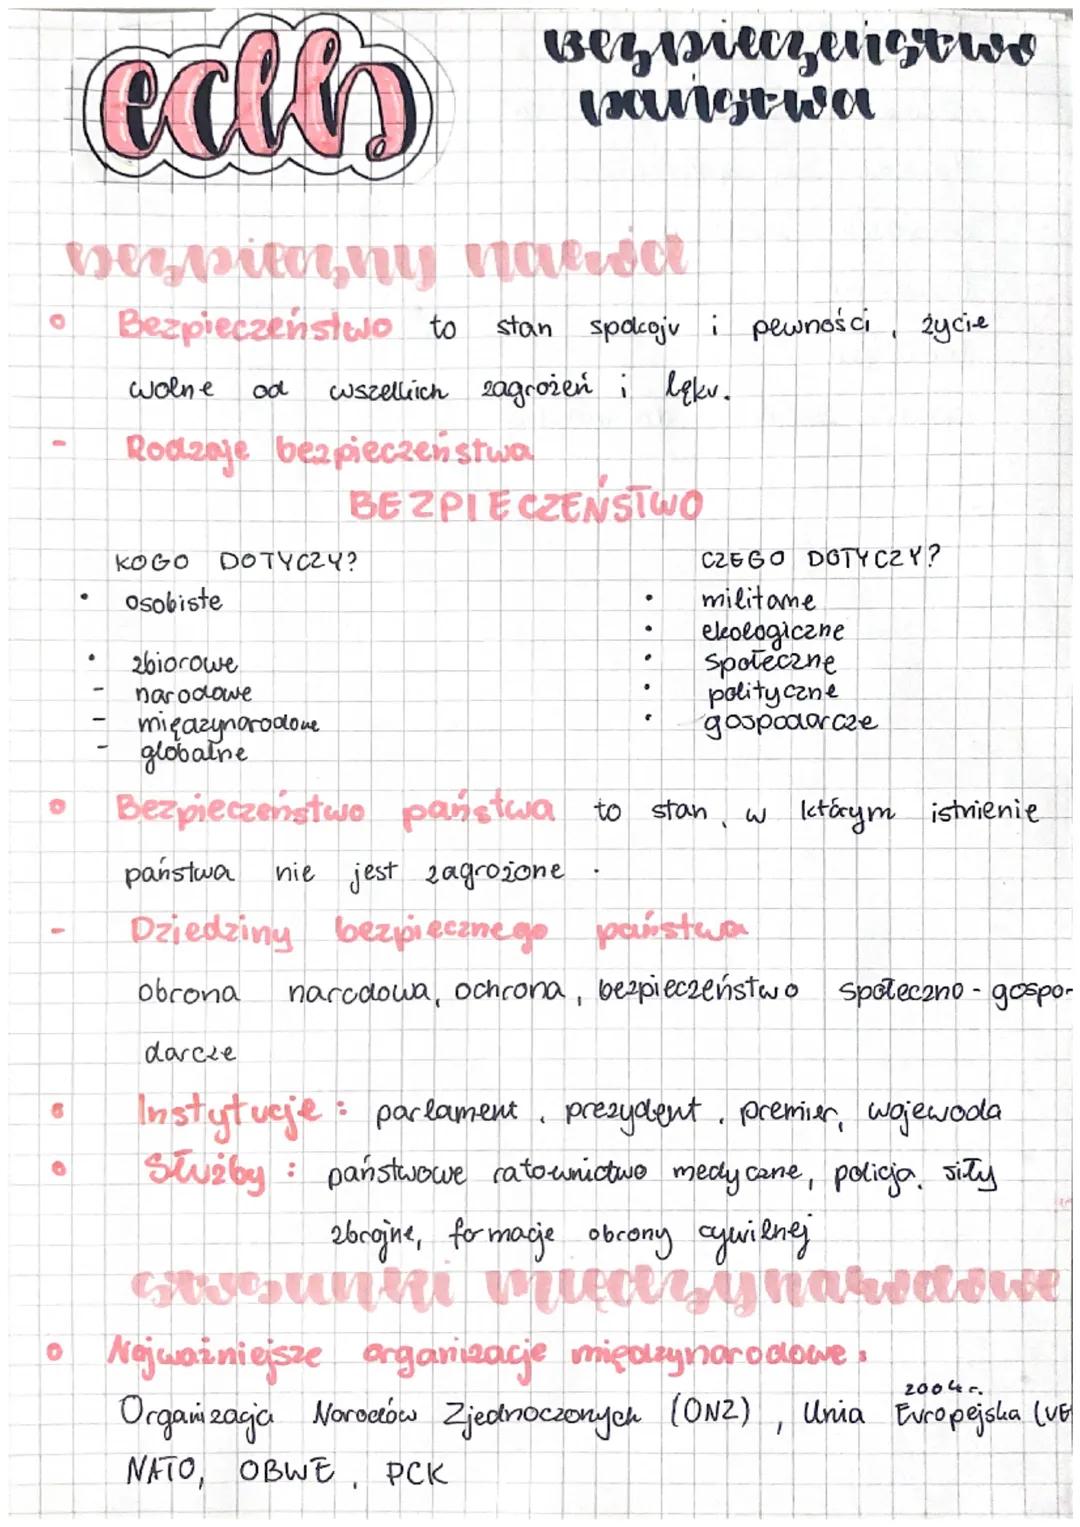 edb
Bezpieczeństwo
państwa
bezpieczny naród
Bezpieczeństwo to stan spokoju i pewności, życie
wolne od wszelkich zagrożeń i lęku.
- Rodzaje bezpieczeństwa
BEZPIECZEŃSTWO
KOGO DOTYCZY?
• osobiste
• zbiorowe
- narodowe
- międzynarodowe
- globalne
CZEGO DOTYCZY?
• militarne
• ekologiczne
• społeczne
• polityczne
• gospodarcze
Bezpieczeństwo państwa to stan, w którym istnienie
państwa nie jest zagrożone.
- Dziedziny bezpiecznego państwa
obrona narodowa, ochrona, bezpieczeństwo społeczno-gospo-
darcze
Instytucje: parlament, prezydent, premier, wojewoda
Służby: państwowe ratownictwo medyczne, policja, siły
zbrojne, formacje obrony cywilnej
stosunki międzynarodowe
Najważniejsze organizacje międzynarodowe:
2004r.
Organizacja Narodów Zjednoczonych (ONZ), Unia Europejska (UE
NATO, OBWE, PCK